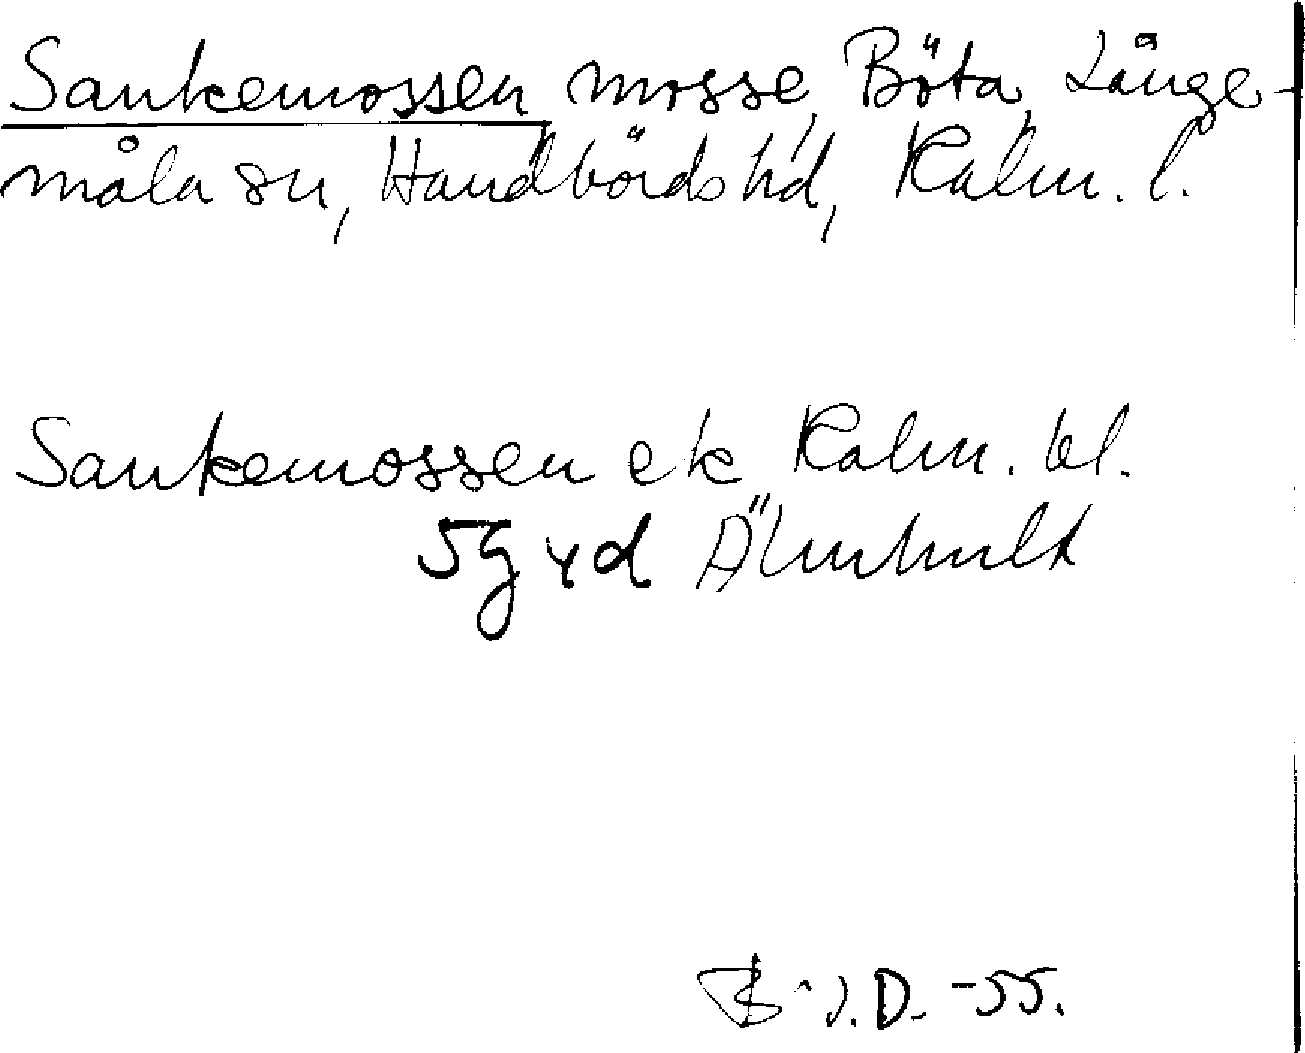 Sankemossen mosse, Böta, Långe-
måla sn, Handbörds hd, Kalm. l.
Sankemossen ek Kalm. bl.
5g yd Älmhult
B. J. D. -55.